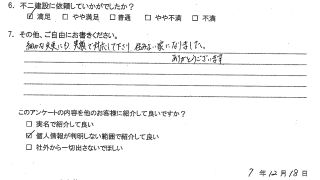 6. 不二建設に依頼していかがでしたか？
☑ 満足 □ やや満足 □ 普通 □ やや不満 □ 不満
7. その他、ご自由にお書きください。
細かな変更にも 笑顔で対応して下さり 住みよい家になりました。
ありがとうございます
このアンケートの内容を他のお客様に紹介して良いですか？
□ 実名で紹介して良い
☑ 個人情報が判明しない範囲で紹介して良い
□ 社外から一切出さないでほしい
7 年 12 月 18 日